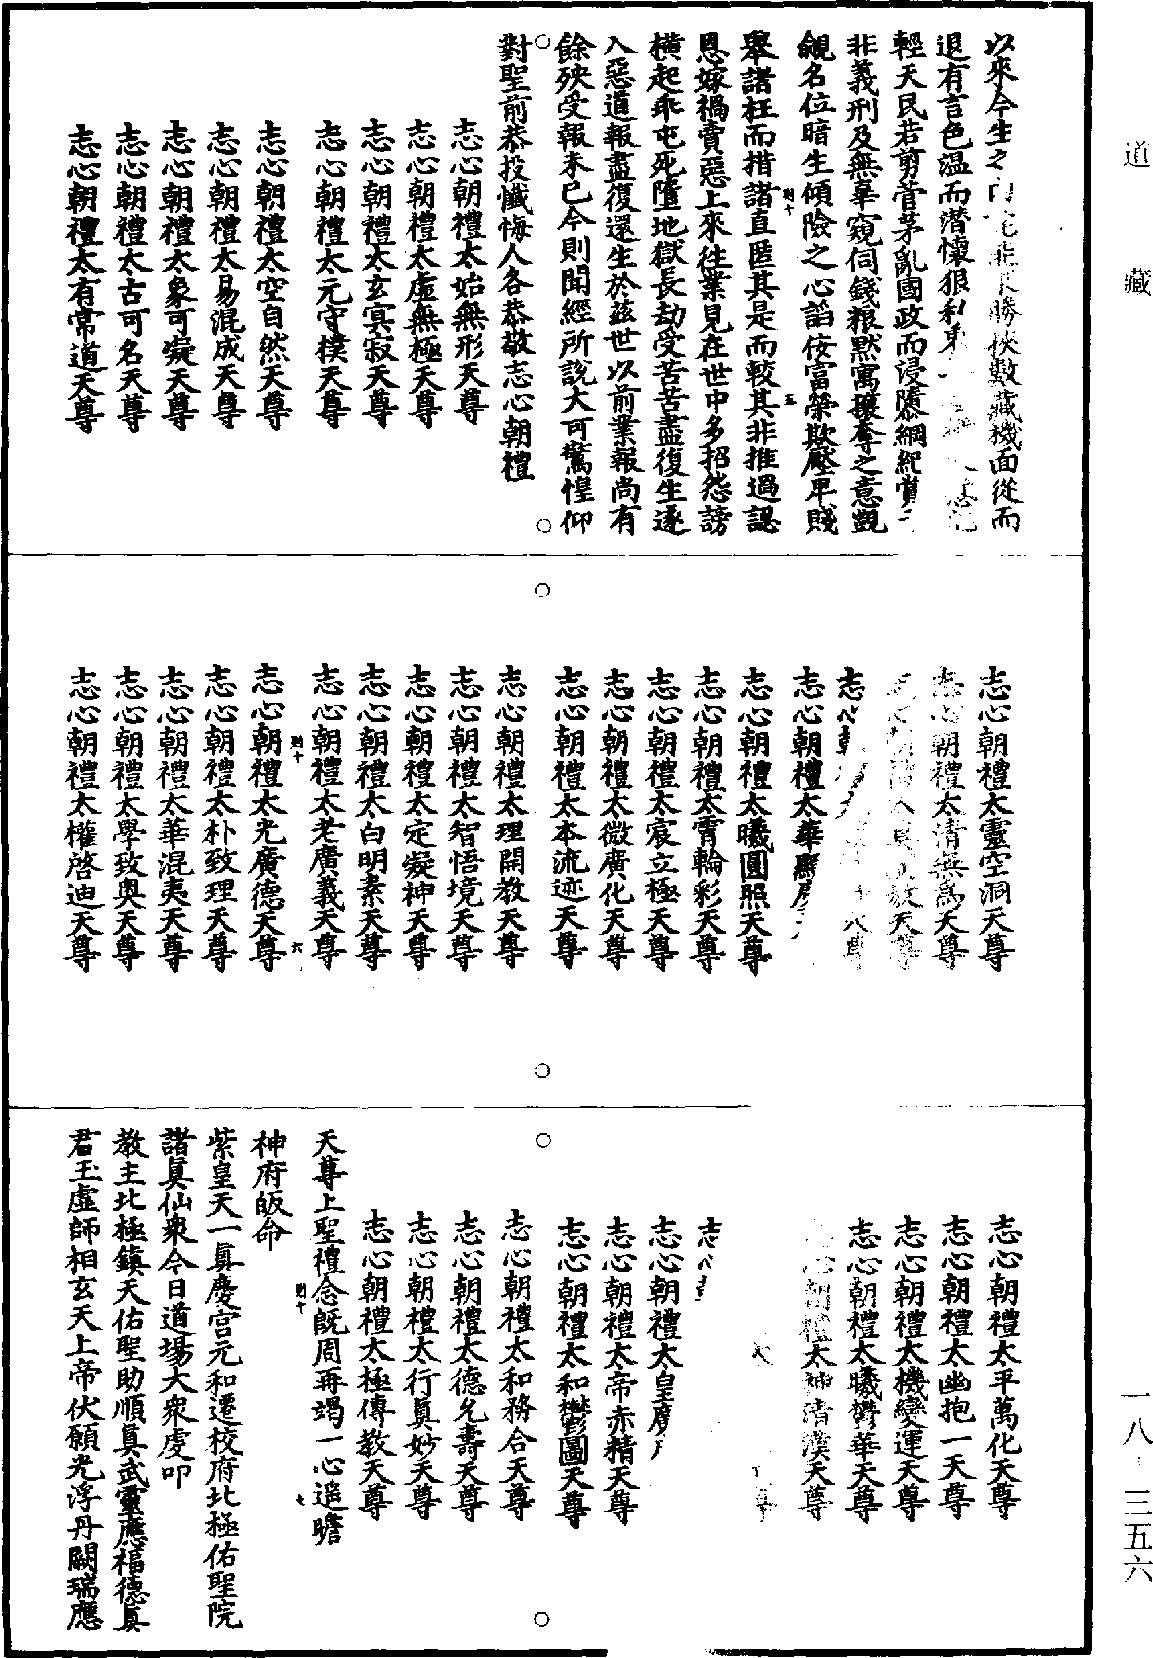 以來今生之
勝快數藏機面從而
退有言色溫而潛懷狠
輕天民若剪菅茅亂國政而浸隳綱紀
非義刑及無辜窺伺錢糧默寓攘奪之意覬
覦名位暗生傾險之心諂佞富榮欺壓卑賤
舉諸枉而措諸直匿其是而較其非推過認
恩嫁禍賣惡上來往業見在世中多招怨謗
橫起乖屯死墮地獄長劫受苦苦盡復生逐
入惡道報盡復還生於茲世以前業報尚有
餘殃受報未已今則聞經所說大可驚惶仰
對聖前恭投懺悔人各恭敬志心朝禮
志心朝禮太始無形天尊
志心朝禮太虛無極天尊
志心朝禮太玄寞寂天尊
志心朝禮太元守樸天尊
志心朝禮太空自然天尊
志心朝禮太易混成天尊
志心朝禮太象可凝天尊
志心朝禮太古可名天尊
志心朝禮太有常道天尊
志心朝禮太靈空洞天尊
志心朝禮太清無為天尊
天尊
志心
志心朝禮太華
志心朝禮太曦圓照天尊
志心朝禮太霄輪彩天尊
志心朝禮太宸立極天尊
志心朝禮太微廣化天尊
志心朝禮太本流迹天尊
志心朝禮太理開教天尊
志心朝禮太智悟境天尊
志心朝禮太定凝神天尊
志心朝禮太白明素天尊
志心朝禮太老廣義天尊
志心朝禮太光廣德天尊
志心朝禮太朴致理天尊
志心朝禮太華混夷天尊
志心朝禮太學致奧天尊
志心朝禮太權啓迪天尊
志心朝禮太平萬化天尊
志心朝禮太幽抱一天尊
志心朝禮太機變運天尊
志心朝禮太曦鬱華天尊
太神清漢天尊
志心
志心朝禮太皇
志心朝禮太帝赤精天尊
志心朝禮太和鬱圖天尊
志心朝禮太和務合天尊
志心朝禮太德允壽天尊
志心朝禮太行真妙天尊
志心朝禮太極傳教天尊
天尊上聖禮念既周再竭一心遥瞻
神府皈命
紫皇天一真慶宮元和遷校府北極佑聖院
諸真仙衆今日道場大衆虔叩
教主北極鎮天佑聖助順真武靈應福德真
君玉虛師相玄天上帝伏願光浮丹闕瑞應
道藏
一八
三五六